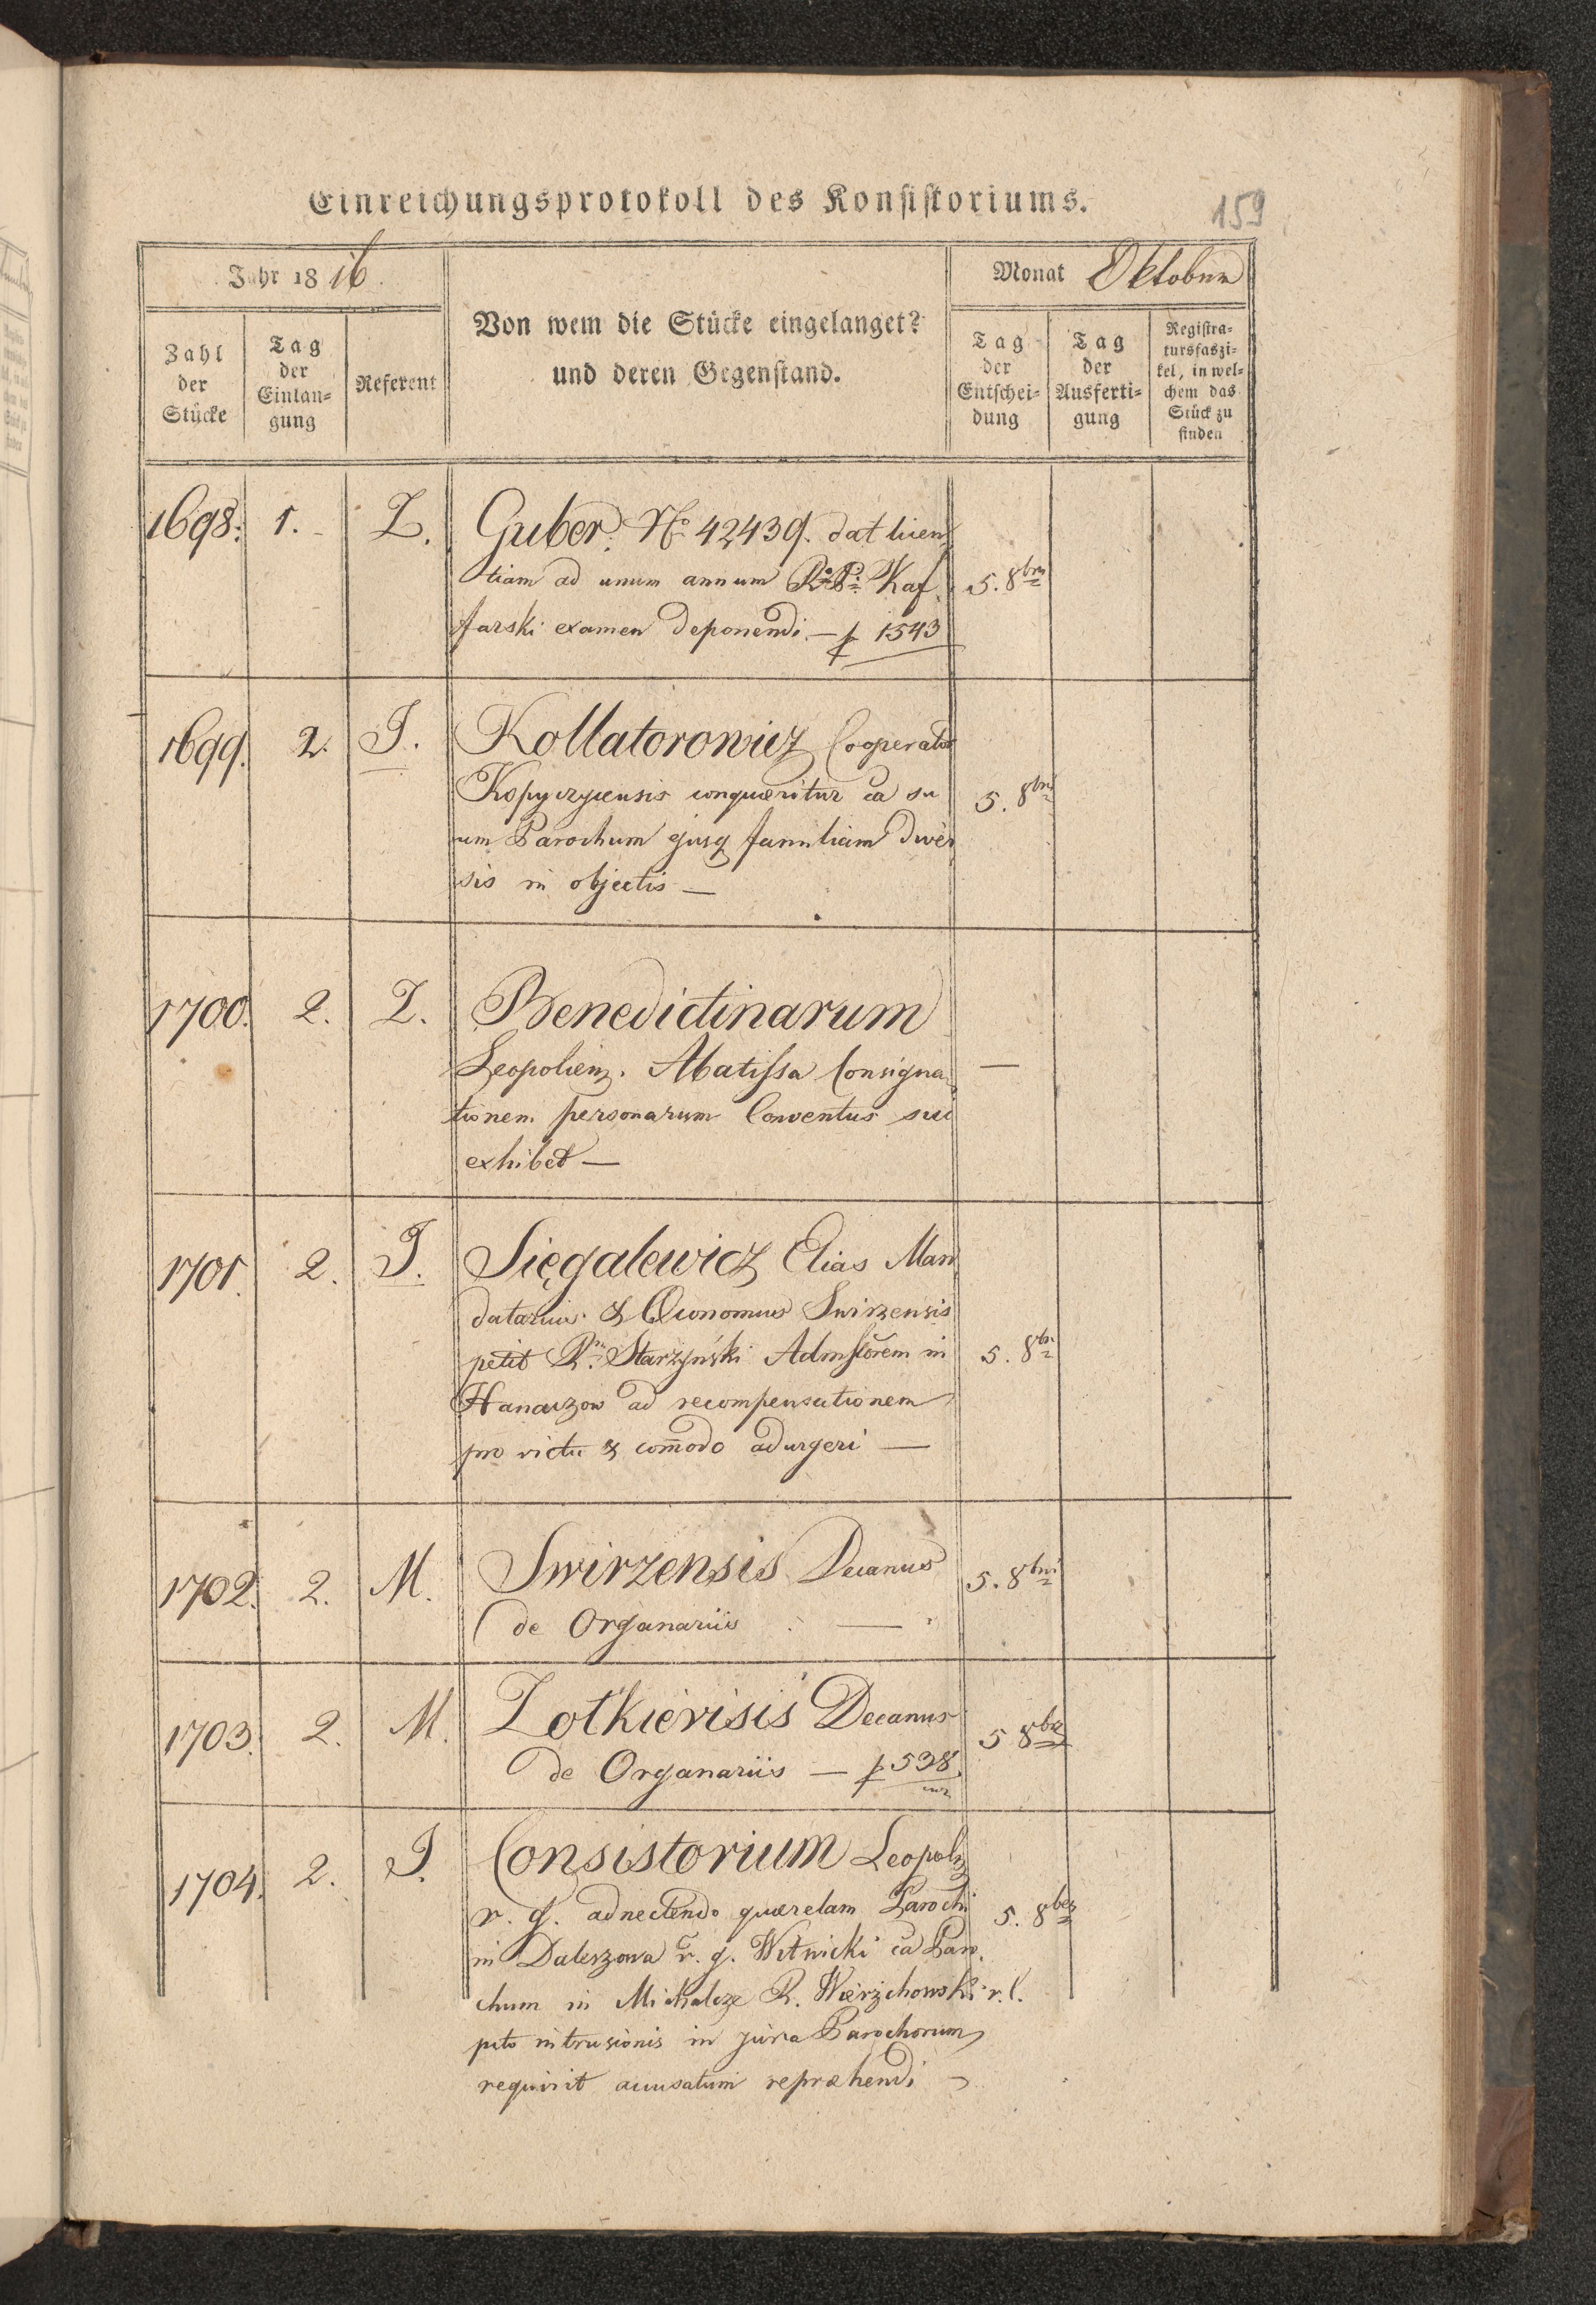 Einreichungsprotokoll des Konsistoriums.
159
Jahr 1816.
Monat Oktober
Zahl der Stücke
Tag der Einlangung
Referent
Von wem die Stücke eingelanget?
und deren Gegenstand.
Tag der Entscheidung
Tag der Ausfertigung
Registratursfaszikel, in welchem das Stück zu finden
1698. 1. Z. Guber. No 42439. dat licen
tiam ad unum annum R: P: Kaf 5. 8bris
farski examen deponendi. — p 1543
1699. 2. J. Kollatorowicz Cooperator
Kopyczycensis conquæritur ca su 5. 8bris
um Parochum ejusq familiam diver
sis in objectis —
1700. 2. Z. Benedictinarum
Leopoliens. Abatissa Consigna —
tionem personarum Conventus sui
exhibet —
1701. 2. J. Sięgalewicz Elias Man
datarius & Œconomus Swirzensis
petit R. Starzyński Admstorem in 5. 8bris
Hanaczow ad recompensationem
pro victu & comodo adurgeri —
1702. 2. M. Swirzensis Decanus 5. 8bris
de Organariis —
1703. 2. M. Zołkievisis Decanus 5 8bris
de Organariis — p 538.
1704. 2. J. Consistorium Leopol
r. g. adnectendo quærelam Parochi 5. 8bris
in Daleszowa r. g. Witwicki ca Paro
chum in Michalcze R. Wierzchowski r. l.
pcto intrusionis in jura Parochorum
requirit accusatum repræhendi —